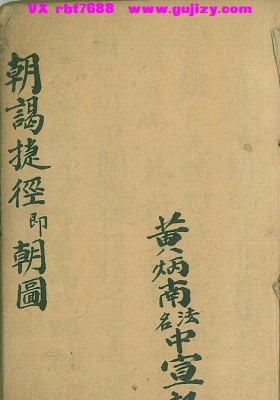 VX rbf7688 www.gujizy.com
朝謁捷徑即朝圖
黄炳南法名中宣